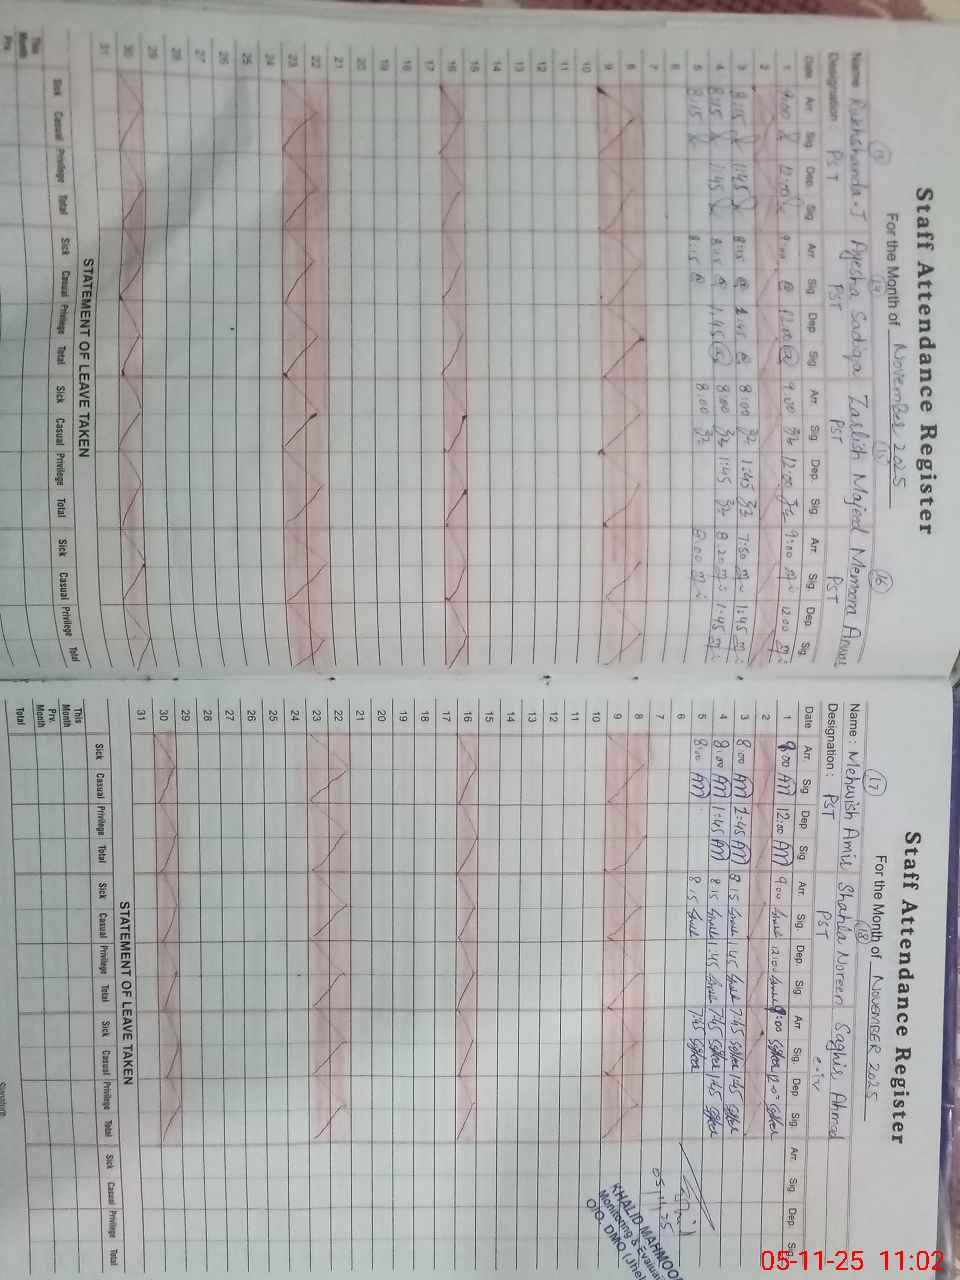 Staff Attendance Register
For the Month of NOVEMBER 2025
13 14 15 16
Name Rukhshanda.J Ayesha Sadiqa Zarlish Majeed Memoona
Designation : PST PST PST PST
Date Arr. Sig. Dep. Sig. Arr. Sig. Dep. Sig. Arr. Sig. Dep. Sig. Arr. Sig. Dep. Sig.
1 9:00 12:00 9:00 12:00 9:00 12:00 9:00 12:00
2
3 8:15 1:45 8:15 1:45 8:00 1:45 7:50 1:45
4 8:15 1:45 8:15 1:45 8:00 1:45 8:20 1:45
5 8:15 8:15 8:00 8:00
6
7
8
9
10
11
12
13
14
15
16
17
18
19
20
21
22
23
24
25
26
27
28
29
30
31
STATEMENT OF LEAVE TAKEN
Sick Casual Privilege Total Sick Casual Privilege Total Sick Casual Privilege Total Sick Casual Privilege Total
This Month
Prv.
Staff Attendance Register
For the Month of NOVEMBER 2025
17 18
Name : Mehwish Amir Shahila Noreen Saghir Ahmad
Designation : PST PST C-iv
Date Arr. Sig. Dep. Sig. Arr. Sig. Dep. Sig. Arr. Sig. Dep. Sig. Arr. Sig. Dep. Sig.
1 9:00 AM 12:00 AM 9:00 12:00 9:00 12:00
2
3 8:00 AM 1:45 AM 8:15 1:45 7:45 1:45
4 8:00 AM 1:45 AM 8:15 1:45 7:45 1:45
5 8:00 AM 8:15 7:45
6
7
8
9
10
11
12
13
14
15
16
17
18
19
20
21
22
23
24
25
26
27
28
29
30
31
STATEMENT OF LEAVE TAKEN
Sick Casual Privilege Total Sick Casual Privilege Total Sick Casual Privilege Total Sick Casual Privilege Total
This Month
Prv. Month
Total
Signature
05/11/25
KHALID MAHMOO
Monitoring & Evalua
O/O. DMO (Jhe
05-11-25 11:02